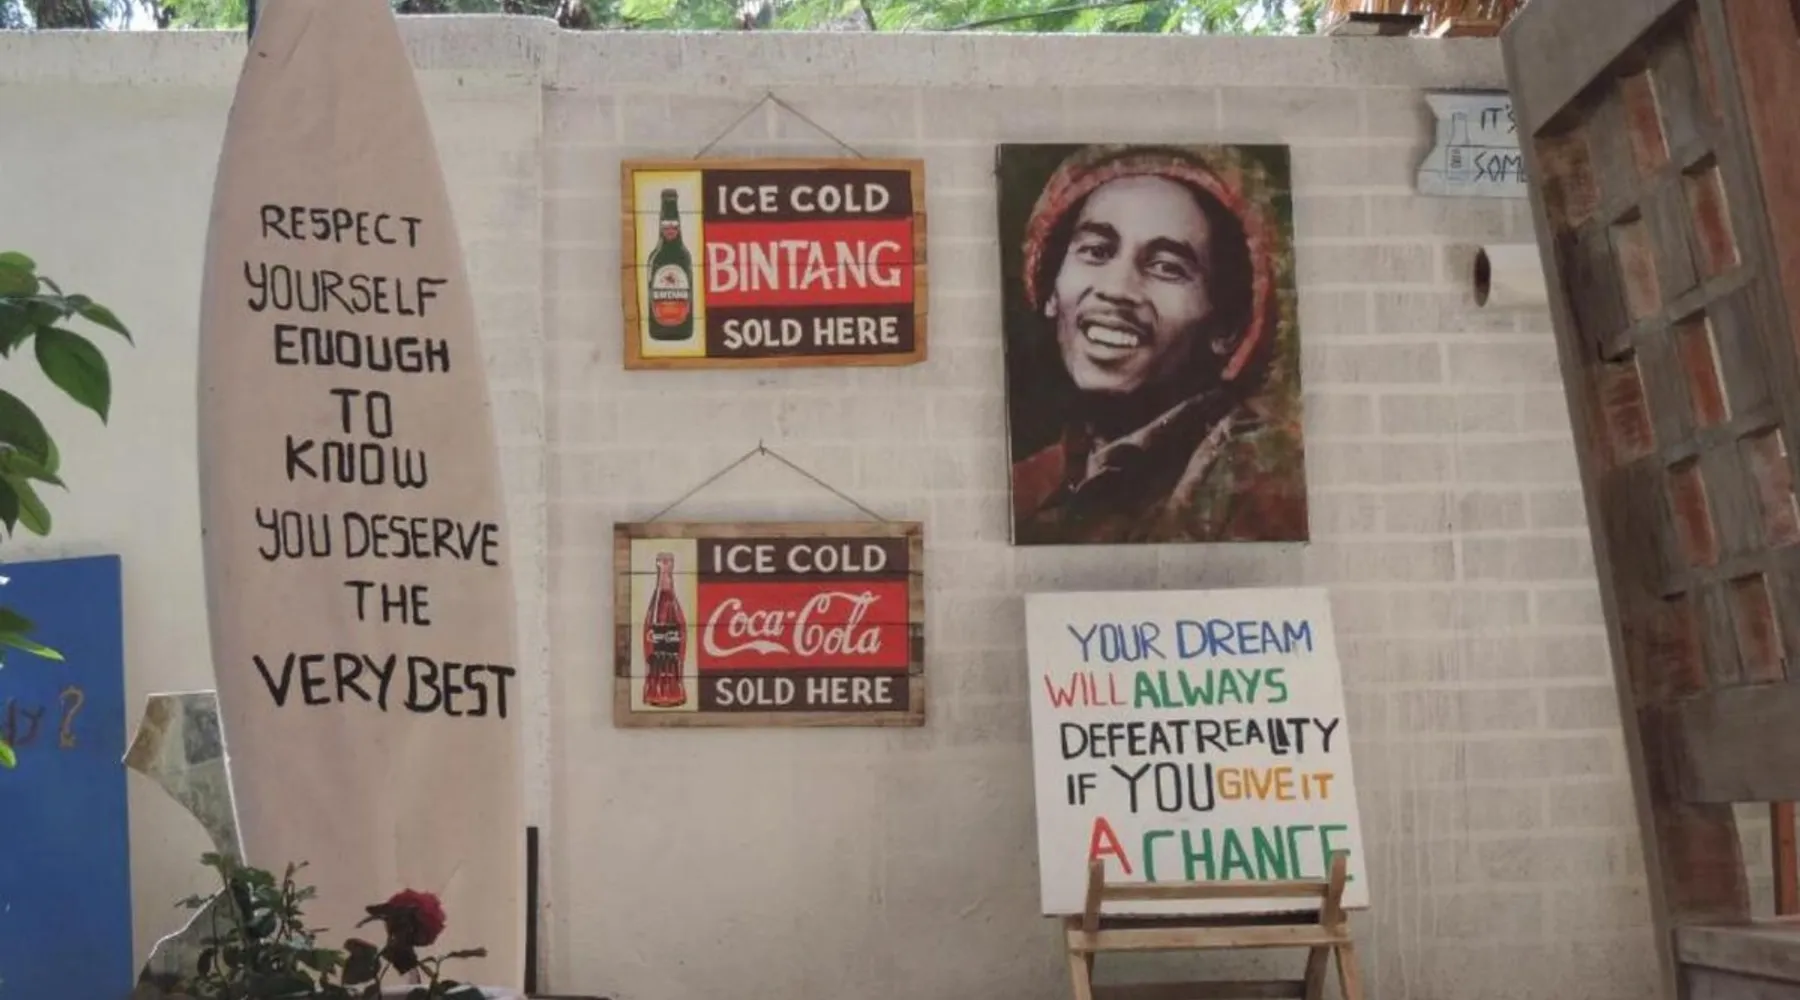 RESPECT
YOURSELF
ENOUGH
TO
KNOW
YOU DESERVE
THE
VERY BEST
ICE COLD
BINTANG
SOLD HERE
BINTANG
ICE COLD
Coca-Cola
SOLD HERE
Coca-Cola
YOUR DREAM
WILL ALWAYS
DEFEAT REALITY
IF YOU GIVE IT
A CHANCE
IT'S